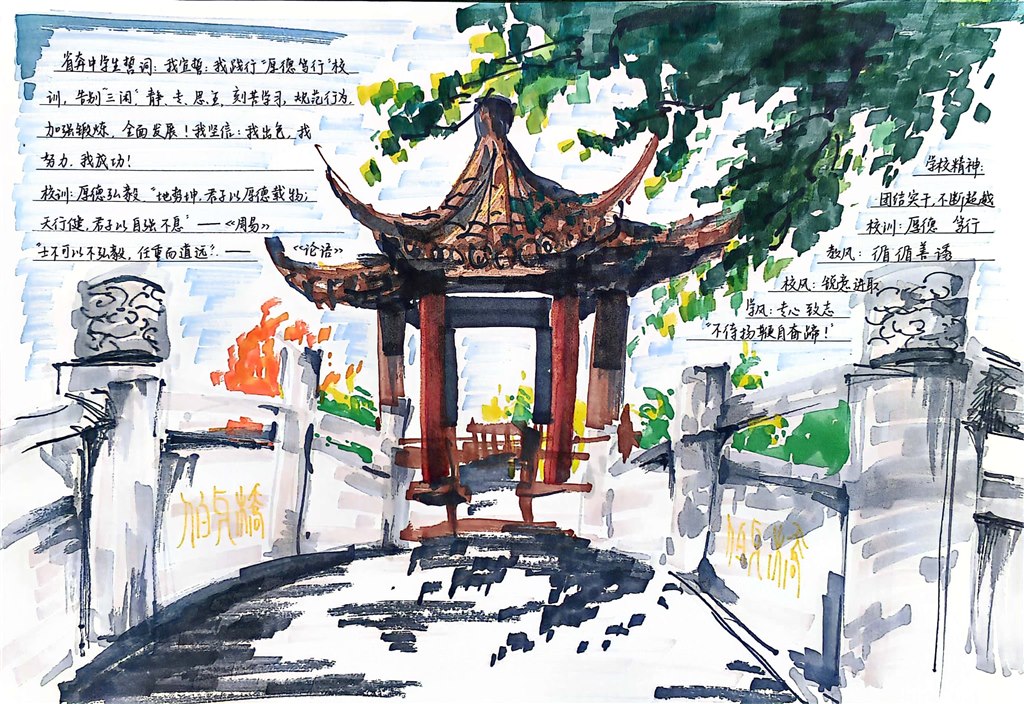 省奔中学生誓词：我宣誓：我践行“厚德笃行”校
训，告别“三闲”静、专、思、主，刻苦学习，规范行为，
加强锻炼，全面发展！我坚信：我出色，我
努力，我成功！
校训：厚德弘毅 “地势坤，君子以厚德载物；
天行健，君子以自强不息”——《周易》
“士不可以不弘毅，任重而道远”.——《论语》
学校精神：
团结实干，不断超越
校训：厚德 笃行
教风：循循善诱
校风：锐意进取
学风：专心致志
“不待扬鞭自奋蹄！”
伯贞橋
伯贞橋